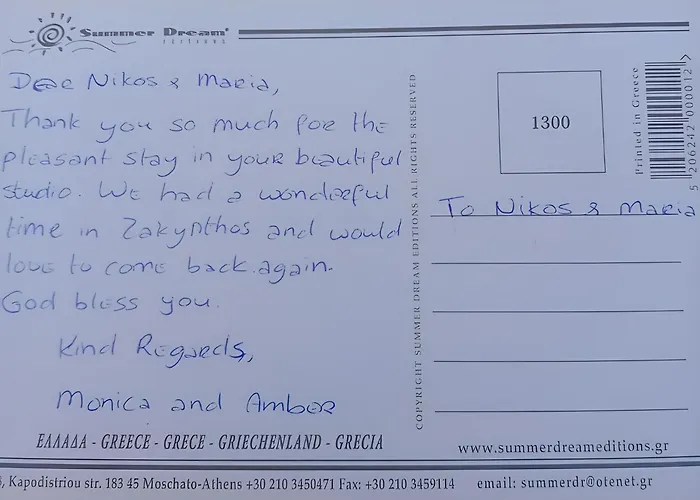 Summer Dream
editions
Dear Nikos & Maria,
Thank you so much for the
pleasant stay in your beautiful
studio. We had a wonderful
time in Zakynthos and would
love to come back again.
God bless you.
Kind Regards,
Monica and Amber
ΕΛΛΑΔΑ - GREECE - GRECE - GRIECHENLAND - GRECIA
COPYRIGHT SUMMER DREAM EDITIONS ALL RIGHTS RESERVED
1300
Printed in Greece
5 206242 000012 >
To Nikos & Maria
www.summerdreameditions.gr
Kapodistriou str. 183 45 Moschato-Athens +30 210 3450471 Fax: +30 210 3459114 email: summerdr@otenet.gr